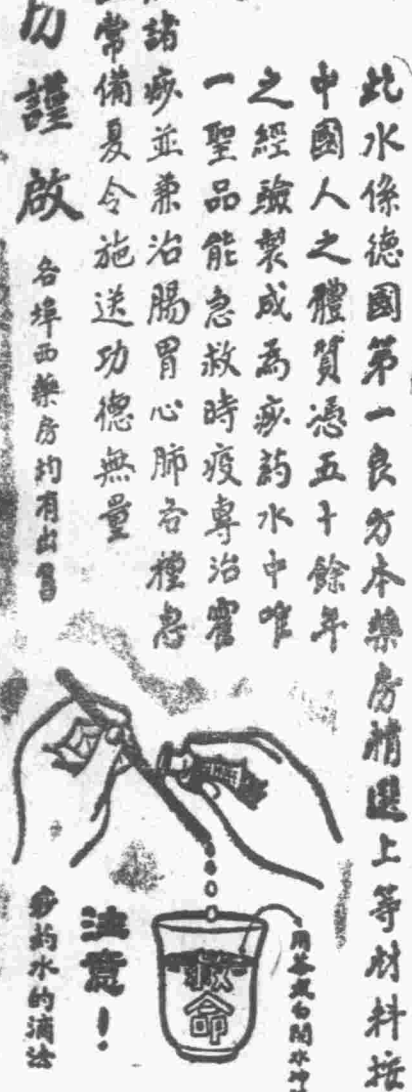 此水係德國第一良方本藥房精選上等材料按
中國人之體質憑五十餘年
之經驗製成為痧葯水中唯
一聖品能急救時疫專治霍
諸痧並兼治腸胃心肺各種急
常備夏令施送功德無量
謹啟
各埠西藥房均有出售
用茶或白開水冲
救命
注意！
痧葯水的滴法